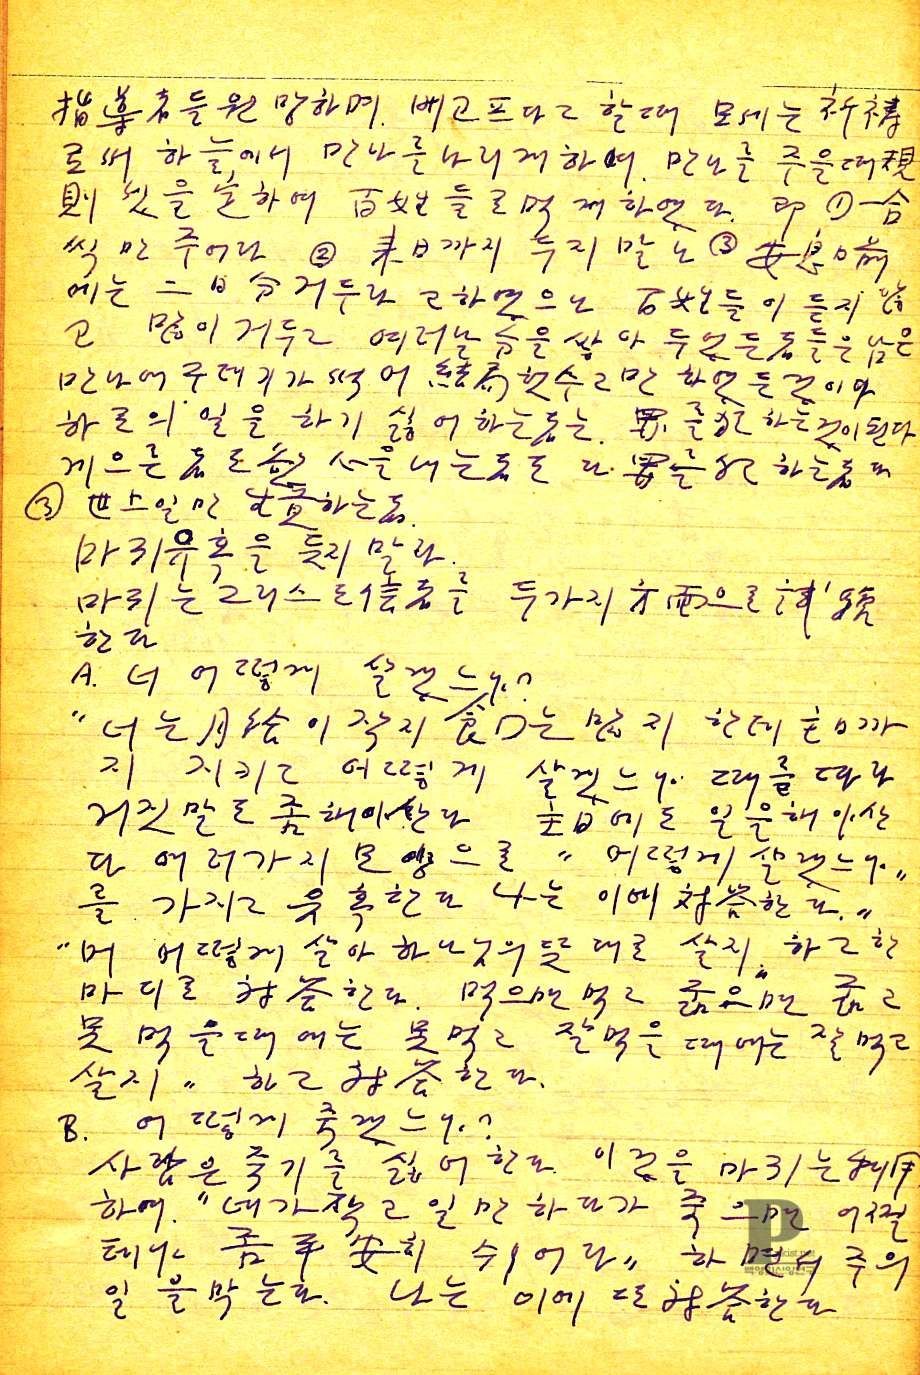 指導者들 원망하며. 배고프다고 할때 모세는 祈禱
로써 하늘에서 만나를 나리게 하여. 만나를 주을때 規
則 을 定하여 百姓들로 먹게 하였다. 即 ① 一合
씩만 주어라 ② 来日까지 두지 말나 ③ 安息日前
에는 二日分 거두라 고 하였으나 百姓들이 듣지 않
고 많이 거두고 여러날 을 쌓아 두었든 者들은 남은
만나에 구데기가 썩어 結局 헛수고만 하였든 것이다
하로의 일을 하기 싫어하는 者는. 罪를 犯하는 것이 된다
게으른 者도 心을 내는 者도 다 罪를 犯하는 者다
③ 世上일만 하는 者.
마귀 유혹을 듯지 말라.
마귀는 그리스도 信者를 두가지 方面으로 試驗
한다
A. 너 어떻게 살겠느냐?
"너는 月給이 작지 食口는 많지 한데 主日까
지 지키고 어떻게 살겠느냐. 때를 따라
거짓말도 좀 해야 산다 主日에도 일을 해야 산
다 여러가지 모양으로 "어떻게 살겠느냐"
를 가지고 유혹한다 나는 이에 対答한다."
"머 어떻게 살아 하나님의 뜻대로 살지" 하고 한
마디로 対答한다. 먹으면 먹고 굶으면 굶고
못 먹을때에는 못먹고 잘먹을 때에는 잘 먹고
살지" 하고 対答한다.
B. 어떻게 죽겠느냐?
사람은 죽기를 싫어한다. 이것을 마귀는 利用
하여. "네가 작고 일만 하다가 죽으면 어쩔
테냐 좀 平安히 쉬어라" 하면서 주의
일을 막는다. 나는 이에 또 対答한다